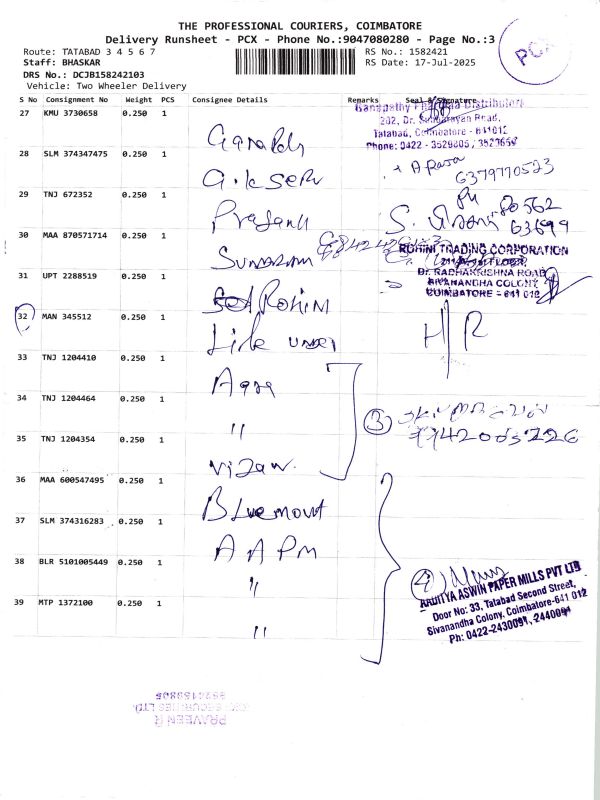 THE PROFESSIONAL COURIERS, COIMBATORE
Delivery Runsheet - PCX - Phone No.:9047080280 - Page No.:3
Route: TATABAD 3 4 5 6 7
RS No.: 1582421
Staff: BHASKAR
RS Date: 17-Jul-2025
DRS No.: DCJB158242103
Vehicle: Two Wheeler Delivery
PCX
S No Consignment No Weight PCS Consignee Details Remarks Seal & Signature
27 KMU 3730658 0.250 1
Ganapathy Pharma Distributors
202, Dr. Road,
Tatabad, Coimbatore - 641012
Phone: 0422 - 3529805, 3527659
28 SLM 374347475 0.250 1
6379770523
29 TNJ 672352 0.250 1
Ph 80562
63699
30 MAA 870571714 0.250 1
Sundaram
ROHINI TRADING CORPORATION
FLOOR,
Dr. RADHAKRISHNA ROAD
SIVANANDHA COLONY
COIMBATORE - 641 012
31 UPT 2288519 0.250 1 Rohini
32 MAN 345512 0.250 1 Link H/R
33 TNJ 1204410 0.250 1
34 TNJ 1204464 0.250 1 "
3
35 TNJ 1204354 0.250 1 Vijay
36 MAA 600547495 0.250 1 Bluemount
37 SLM 374316283 0.250 1 AAPM
38 BLR 5101005449 0.250 1 "
4
39 MTP 1372100 0.250 1 "
AADITYA ASWIN PAPER MILLS PVT LTD
Door No: 33, Tatabad Second Street,
Sivanandha Colony, Coimbatore-641 012
Ph: 0422-2430091, 2440091
PRAVEEN R
SECURITIES LTD.